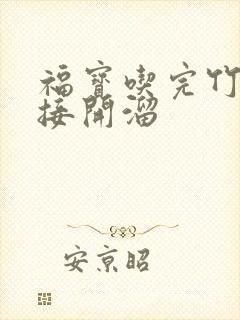 福寶喫完竹
接開溜
安京昭